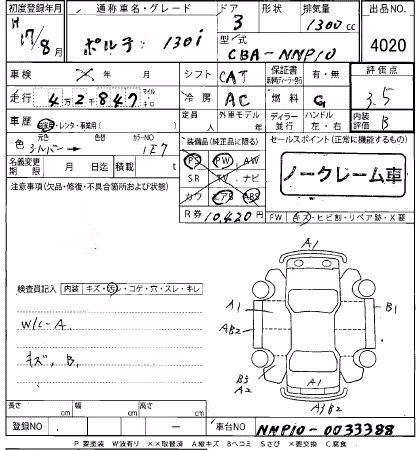 初度登録年月 通称車名・グレード ドア 形状 排気量 出品NO.
H17/8月 ポルテ 130i 3 1300cc 4020
型式 CBA-NNP10
車検 年 月 シフト CAT 保証書 有・無 評価点
走行 4万2千847 マイル キロ 冷房 AC 燃料 G 3.5
車歴 ・レンタ・事業用( ) 定員 人 外車モデル 年 ディーラー 並行 ハンドル 左・右 内装評価 B
色 元色 シルバー 色替 カラーNO 1E7 装備品(純正品に限る) セールスポイント(正常に機能するもの)
PS PW AW
名義変更期限 月 日迄 積載 t SR TV ナビ ノークレーム車
注意事項(欠品・修復・不具合箇所および状態) カワ エアB ABS
R券 10,420円 FW キズ・ヒビ割・リペア跡・X要
A1
検査員記入 内装 キズ・汚レ・コゲ・穴・スレ・キレ
A1 B1
W/C-A AB2
キズ、B、 B3
A2
A1
A3B2
長さ cm 幅 cm 高さ cm
登録NO. ― 車台NO. NNP10-0033388
P 要塗装 W波有り ××取替済 A極キズ Bヘコミ Sさび ×要交換 C腐食